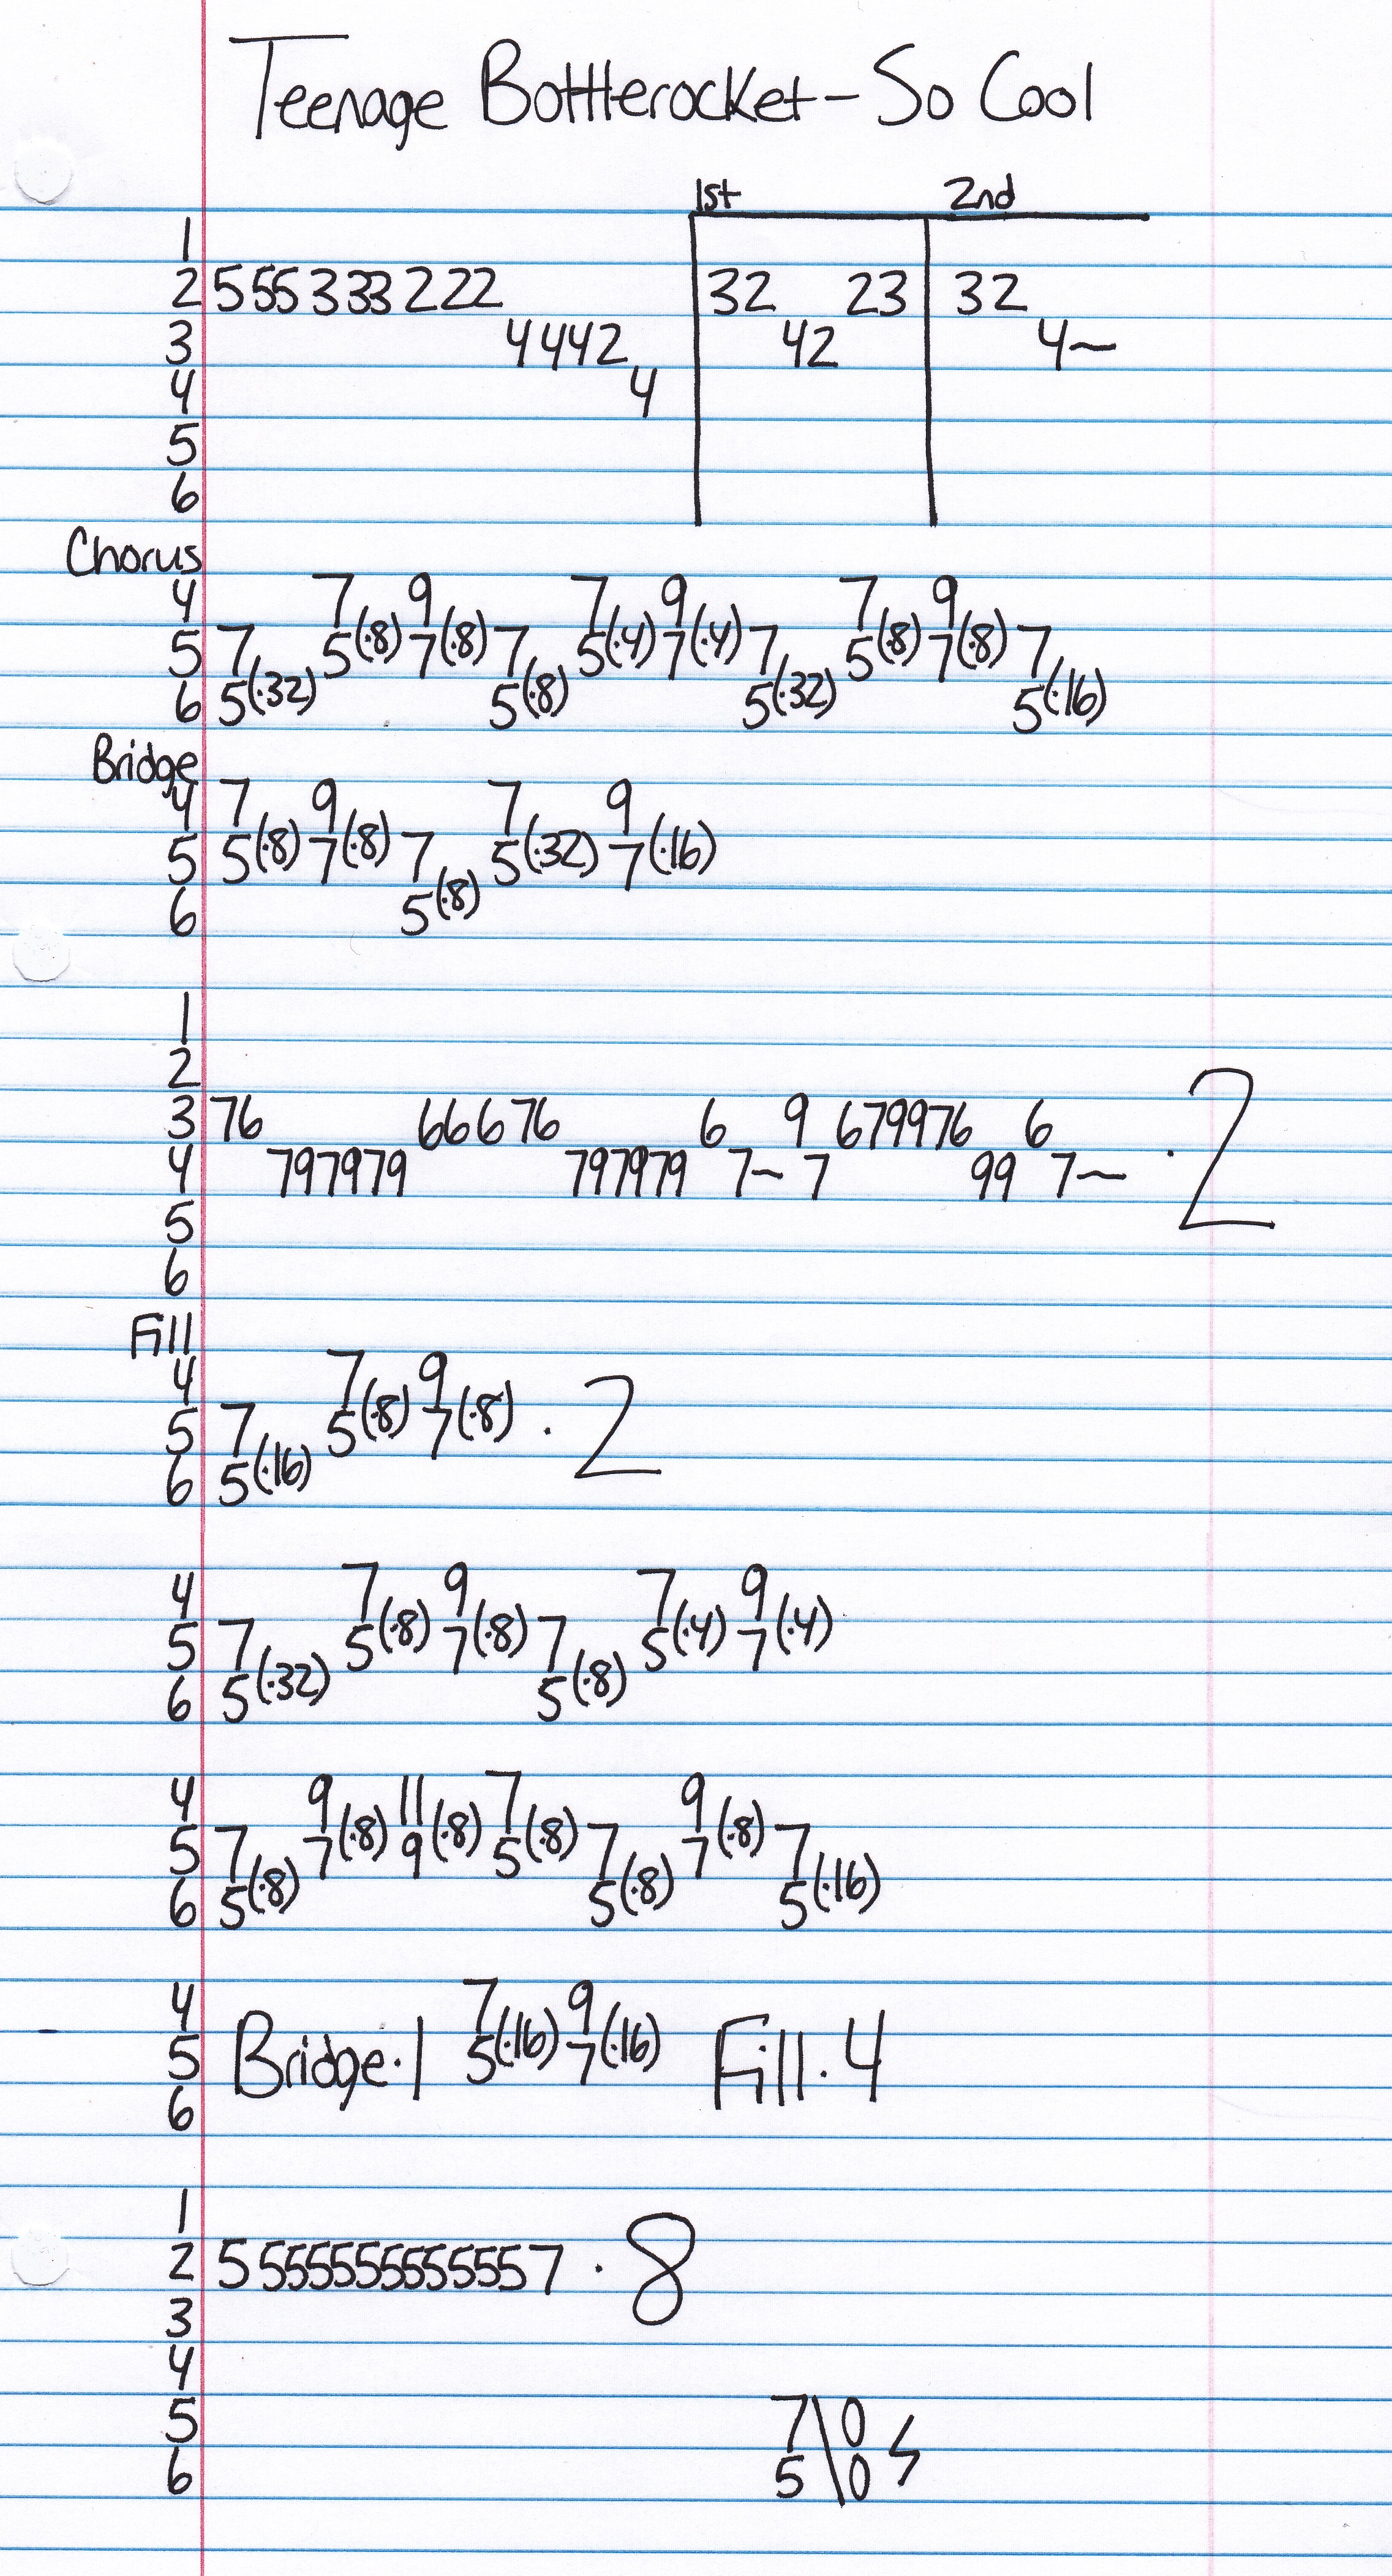 Teenage Bottlerocket - So Cool
1st 2nd
1
2 555333222 32 23 32
3 4442 42 4~
4 4
5
6
Chorus
4 7 9 7 9 7 9
5 7 5(·8) 7(·8) 7 5(·4) 7(·4) 7 5(·8) 7(·8) 7
6 5(·32) 5(·8) 5(·32) 5(·16)
Bridge
4 7 9 7 9
5 5(·8) 7(·8) 7 5(·32) 7(·16)
6 5(·8)
1
2
3 76 66676 6 9 679976 6 · 2
4 797979 797979 7~ 7 99 7~
5
6
Fill
4 7 9
5 7 5(·8) 7(·8) · 2
6 5(·16)
4 7 9 7 9
5 7 5(·8) 7(·8) 7 5(·4) 7(·4)
6 5(·32) 5(·8)
4 9 11 7 9
5 7 7(·8) 9(·8) 5(·8) 7 7(·8) 7
6 5(·8) 5(·8) 5(·16)
4 7 9
5 Bridge·1 5(·16) 7(·16) Fill·4
6
1
2 5555555555557 · 8
3
4
5 7\0
6 5\0